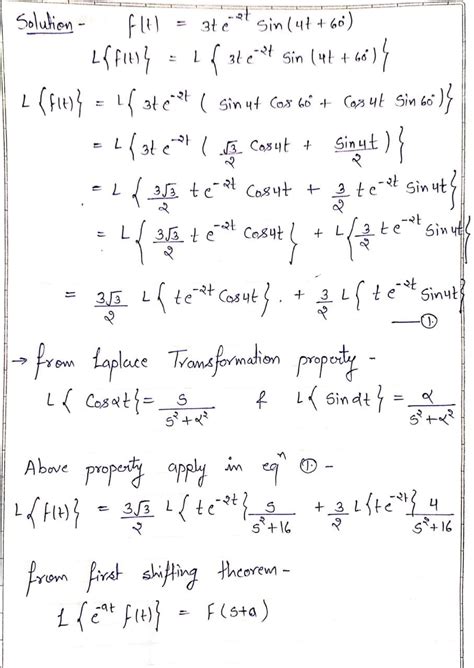 Solution - f(t) = 3te^-2t Sin(4t + 60°)
L{f(t)} = L{ 3te^-2t Sin (4t + 60°)}
L{f(t)} = L{ 3te^-2t ( Sin 4t Cos 60° + Cos 4t Sin 60°)}
= L{ 3t e^-2t ( √3/2 Cos4t + Sin4t/2 )}
= L{ 3√3/2 t e^-2t Cos4t + 3/2 te^-2t Sin4t}
= L{ 3√3/2 t e^-2t Cos4t} + L{ 3/2 te^-2t Sin4t}
= 3√3/2 L{te^-2t Cos4t}. + 3/2 L{te^-2t Sin4t}
—①
→ from Laplace Transformation property -
L{ Cosαt} = s/s²+α² & L{ Sinαt} = α/s²+α²
Above property apply in eqⁿ ① -
L{f(t)} = 3√3/2 L{te^-2t} s/s²+16 + 3/2 L{te^-2t} 4/s²+16
from first shifting theorem -
L{e^-at f(t)} = F(s+a)